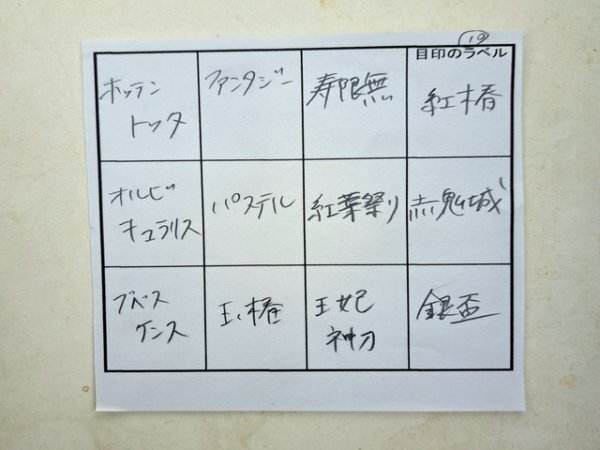 19
目印のラベル
ホッテン
トッタ
ファンタジー
寿限無
紅椿
オルビ
キュラリス
パステル
紅葉祭り
赤鬼城
プベス
ケンス
玉椿
王妃
神刀
銀盃